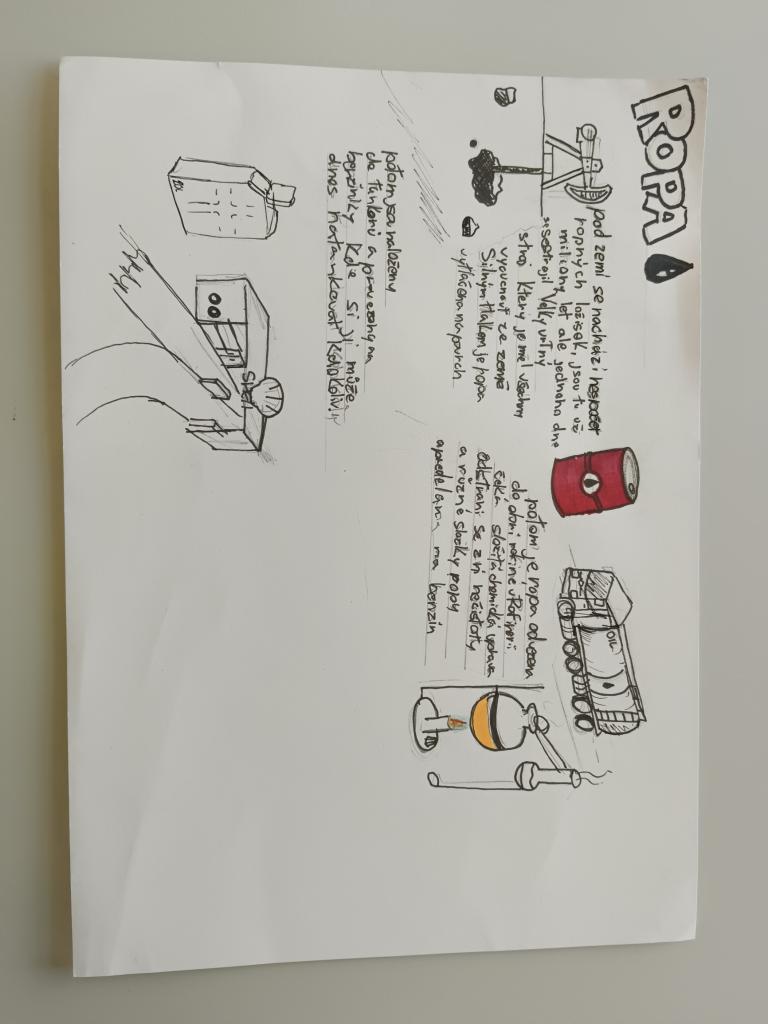 ROPA
pod zemí se nachází nespočet
ropných ložisek, jsou tu už
miliony let ale jednoho dne
sestrojil Velký vrtný
stroj který je měl všechny
vycucnout ze země
Silným tlakem je ropa
vytlačena na povrch
OIL
potom je ropa odvezena
do obří rafinérie
čeká složitá chemická úprava
odstraní se z ní nečistoty
a různé složky ropy
a předělána na benzín
potom je naložena
do tankerů a převezena na
benzínky kde si ji může
dnes natankovat kdokoliv
Shell